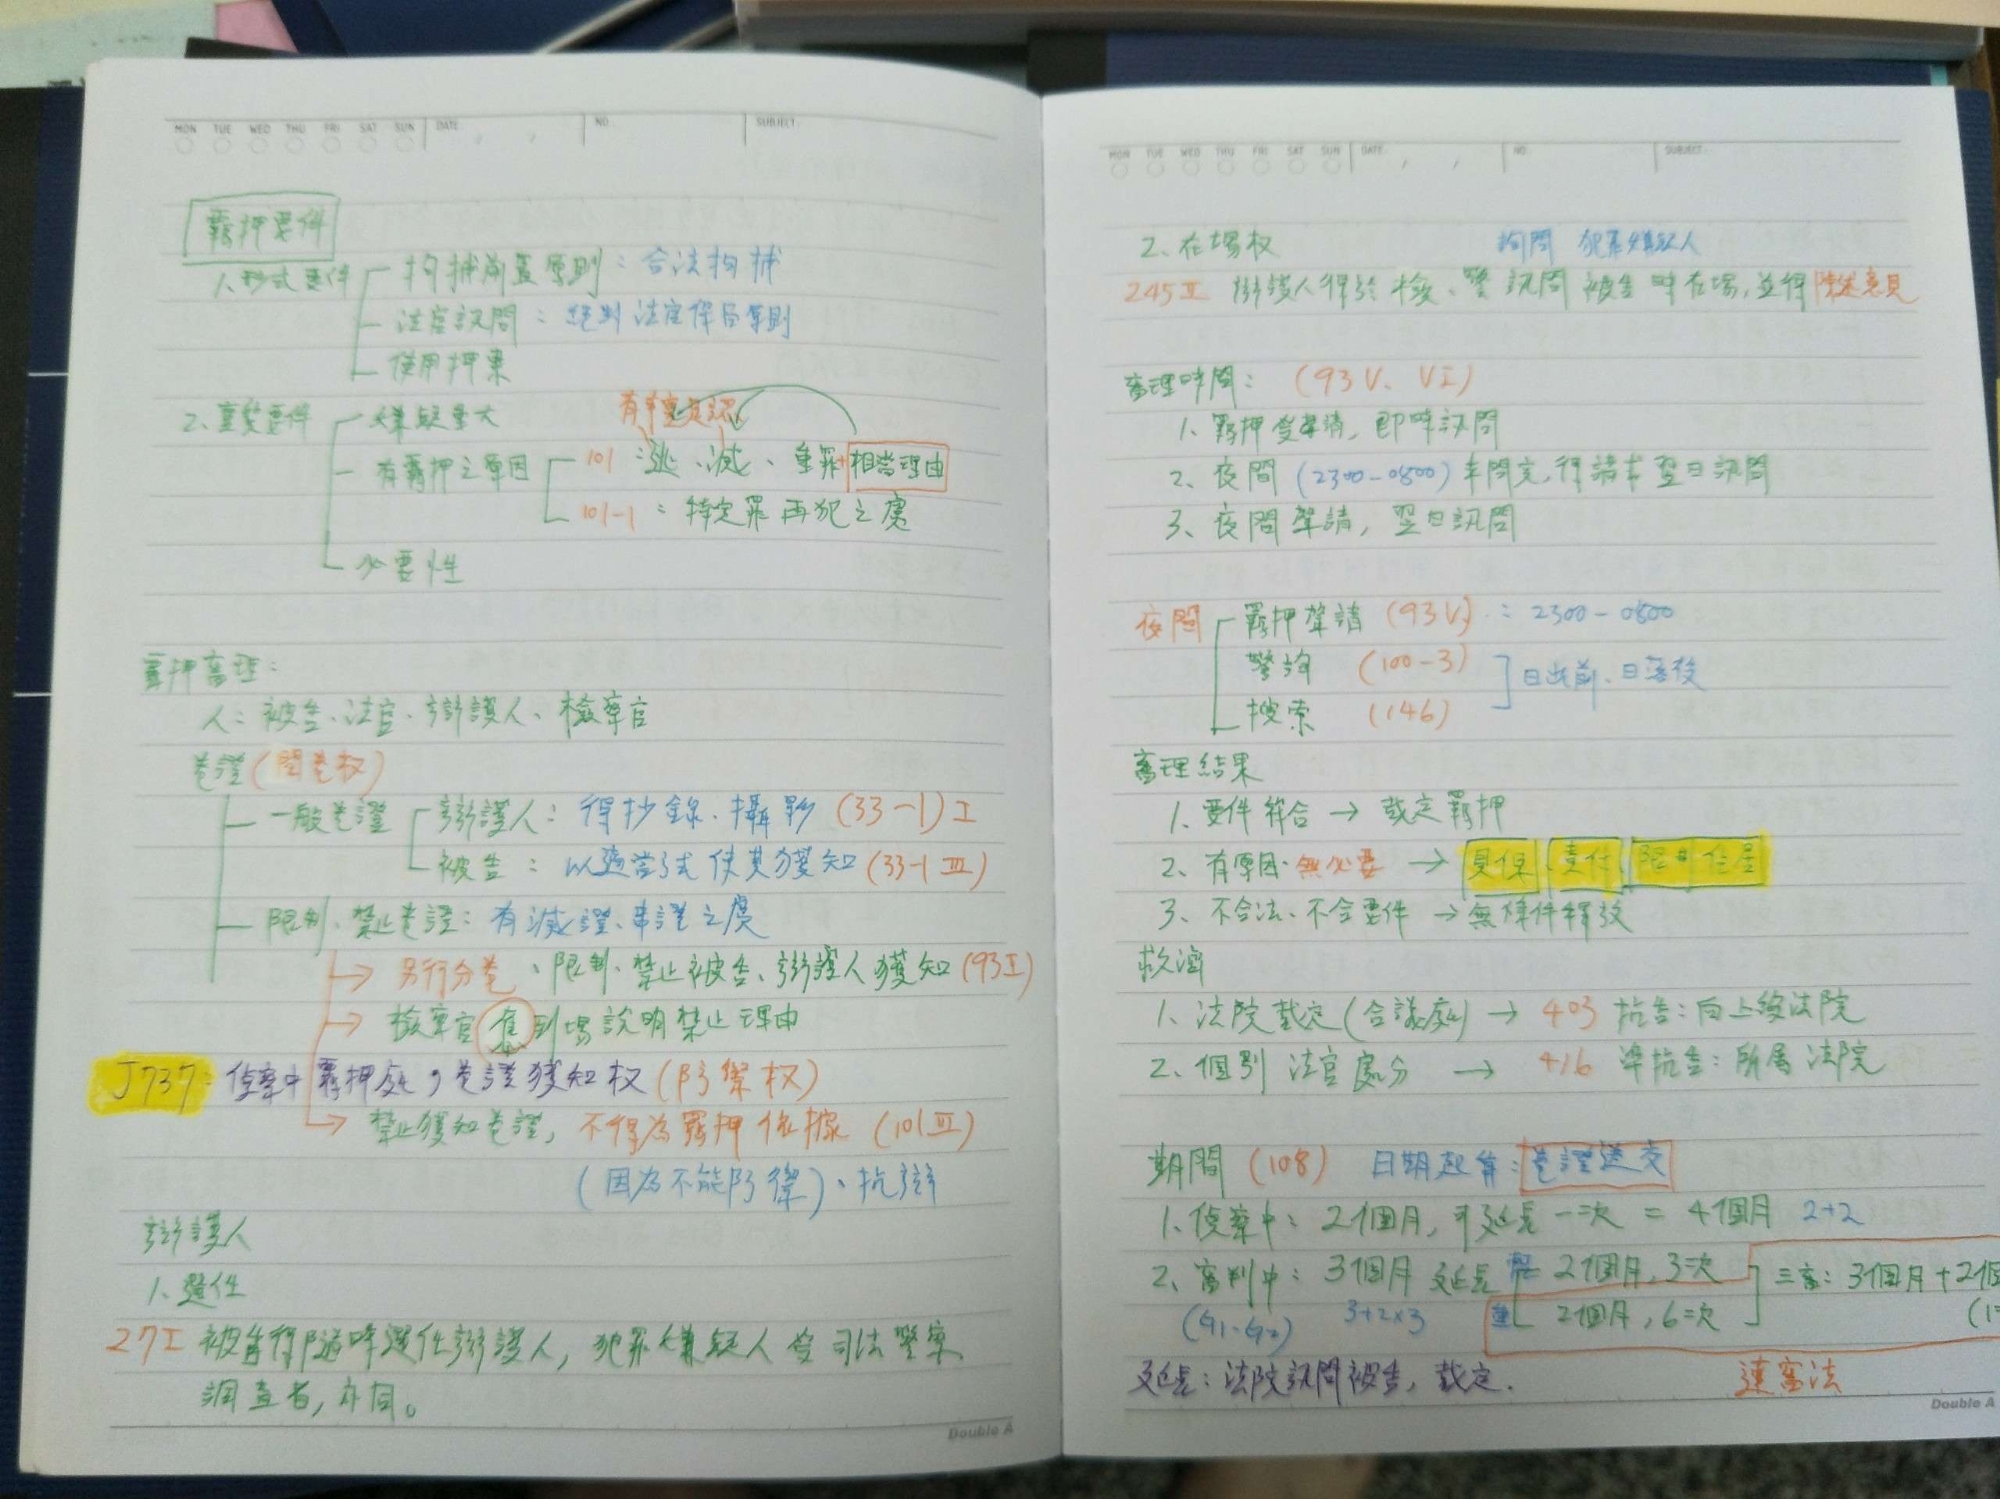 MON TUE WED THU FRI SAT SUN DATE NO. SUBJECT
羈押要件
1、形式要件 拘捕前置原則：合法拘捕
法官訊問：絕對法官保留原則
使用押票
2、實質要件 嫌疑重大
有事實足認
有羈押之原因 101：逃、滅、重罪+相當理由
101-1：特定罪再犯之虞
必要性
羈押審理：
人：被告、法官、辯護人、檢察官
卷證(閱卷權)
一般卷證 辯護人：得抄錄、攝影(33-1)I
被告：以適當方式使其獲知(33-1 III)
限制、禁止卷證：有滅證、串證之虞
→ 另行分卷、限制、禁止被告、辯護人獲知(93II)
→ 檢察官應到場說明禁止理由
J737：偵查中羈押庭，卷證獲知權(防禦權)
→ 禁止獲知卷證，不得為羈押依據(101III)
(因為不能防禦)、抗辯
辯護人
1、選任
27I 被告得隨時選任辯護人，犯罪嫌疑人受司法警察
調查者，亦同。
Double A
MON TUE WED THU FRI SAT SUN DATE NO. SUBJECT
2、在場權 詢問 犯罪嫌疑人
245II 辯護人得於檢、警訊問被告時在場，並得陳述意見
審理時間：(93V、VI)
1、羈押受聲請，即時訊問
2、夜間(2300-0800)未問完，得請求翌日訊問
3、夜間聲請，翌日訊問
夜間 羈押聲請(93V)：2300-0800
警詢(100-3) 日出前、日落後
搜索(146)
審理結果
1、要件符合→裁定羈押
2、有原因、無必要→具保、責付、限制住居
3、不合法、不合要件→無條件釋放
救濟
1、法院裁定(合議庭)→403 抗告：向上級法院
2、個別法官處分→416 準抗告：所屬法院
期間(108) 日期起算：卷證送交
1、偵查中：2個月，可延長一次=4個月 2+2
2、審判中：3個月 延長 輕 2個月，3次 三審：3個月+2個
3+2×3 重 2個月，6次 (1
延長：法院訊問被告，裁定. 速審法
Double A